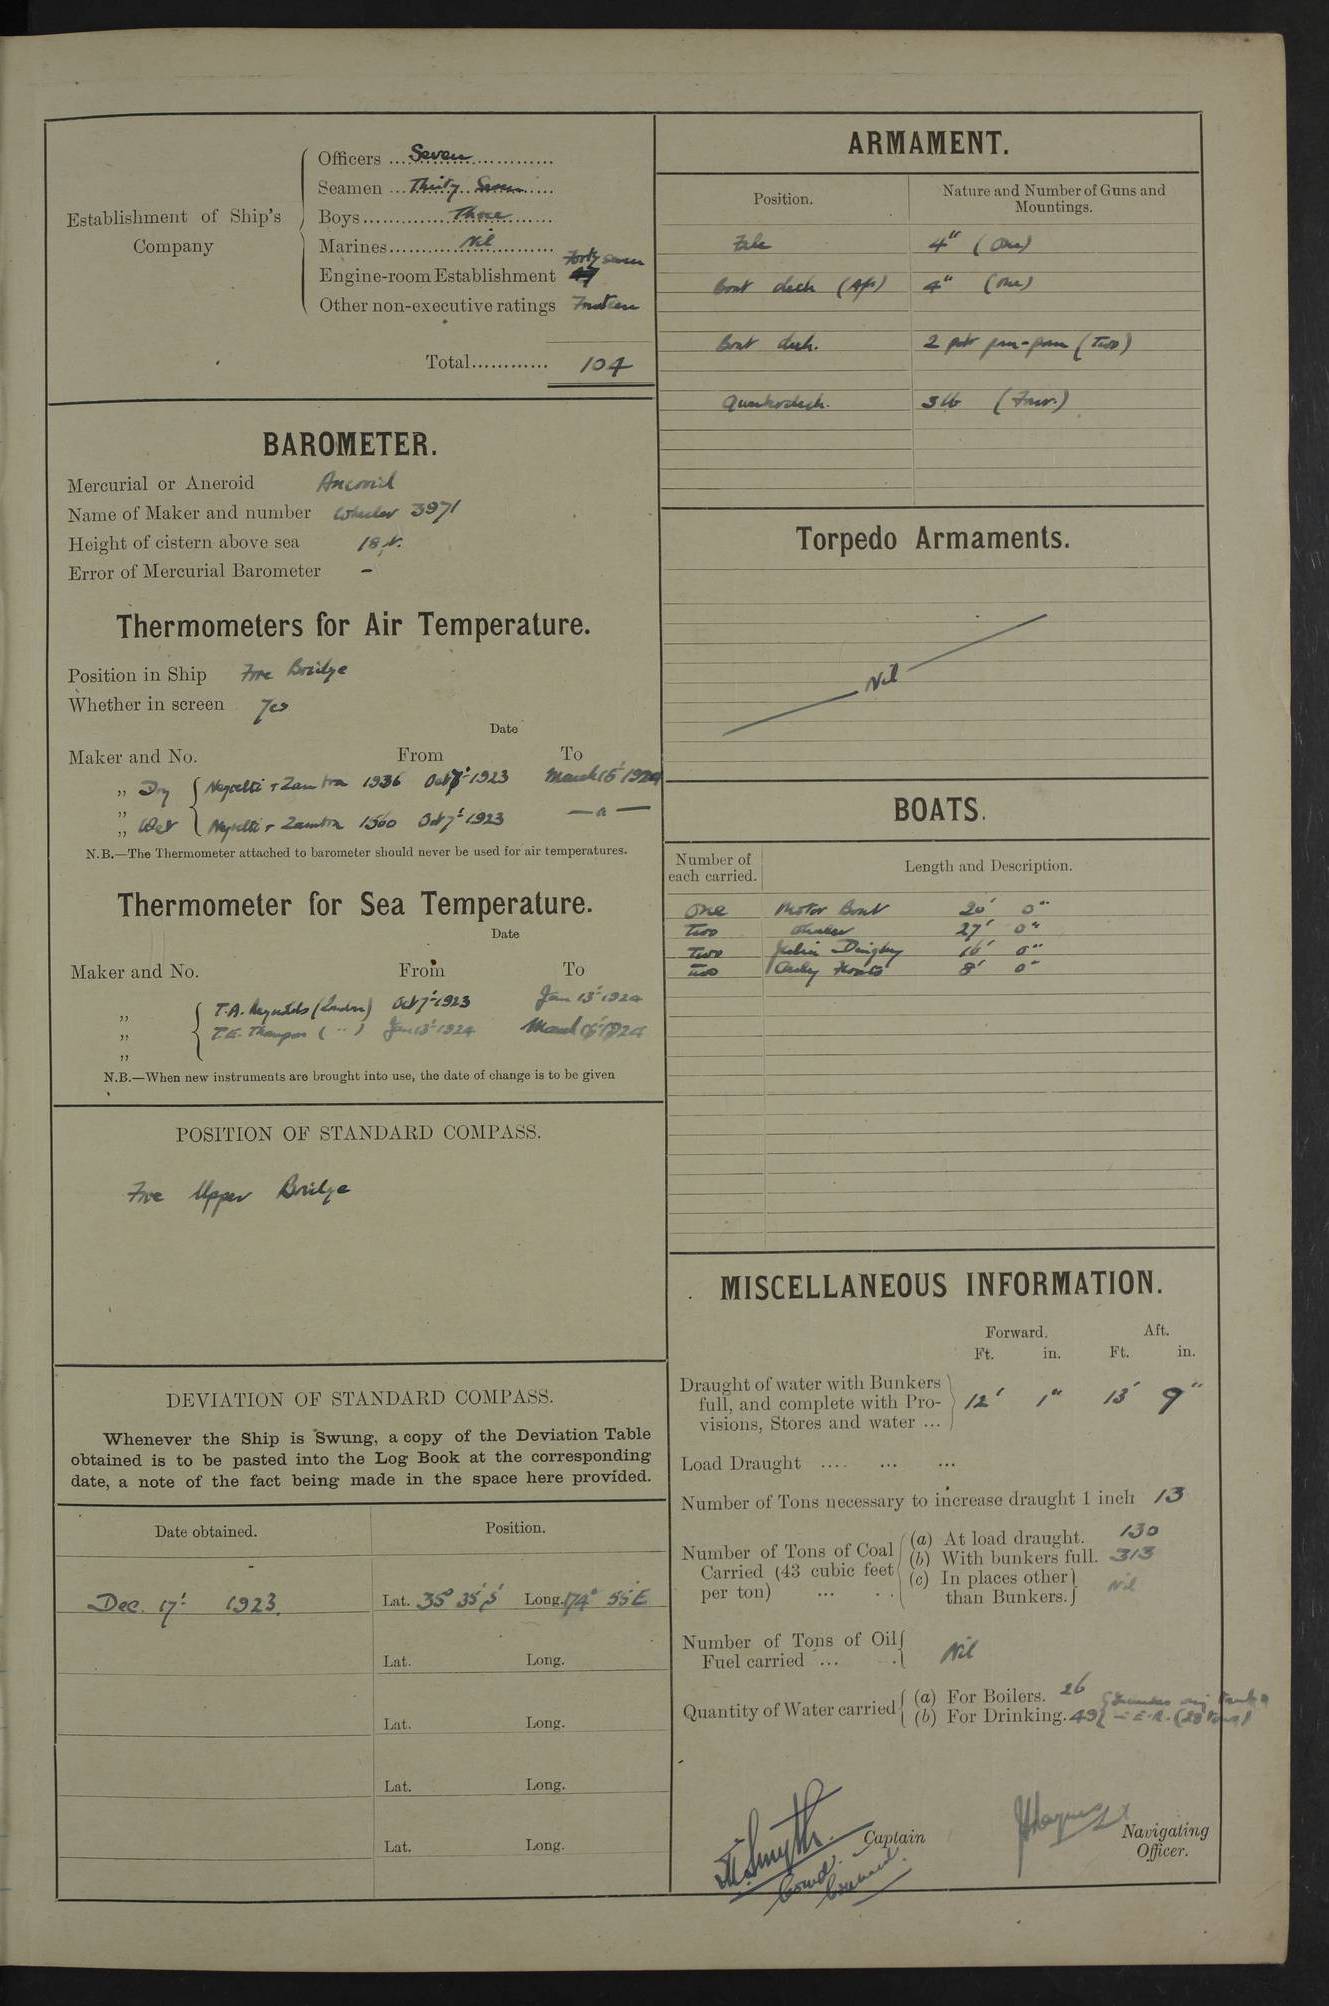 Establishment of Ship's Company
Officers .... Seven
Seamen ... Thirty Seven
Boys ............. Three
Marines ........... Nil
Engine-room Establishment Forty seven
Other non-executive ratings Fourteen
Total ............ 104
BAROMETER.
Mercurial or Aneroid Aneroid
Name of Maker and number Wheeler 3971
Height of cistern above sea 18 ft.
Error of Mercurial Barometer –
Thermometers for Air Temperature.
Position in Ship Fore Bridge
Whether in screen Yes
Date
Maker and No. From To
„ Dry Negretti + Zambra 1936 Oct 7th 1923 March 15th 1924
„
„ Wet Negretti + Zambra 1560 Oct 7th 1923 — „ —
N.B.—The Thermometer attached to barometer should never be used for air temperatures.
Thermometer for Sea Temperature.
Date
Maker and No. From To
„ T.A. Reynolds (London) Oct 7th 1923 Jan 13th 1924
„ T.E. Thompson ( " ) Jan 13th 1924 March 15th 1924
„
N.B.—When new instruments are brought into use, the date of change is to be given
POSITION OF STANDARD COMPASS.
Fore Upper Bridge
DEVIATION OF STANDARD COMPASS.
Whenever the Ship is Swung, a copy of the Deviation Table
obtained is to be pasted into the Log Book at the corresponding
date, a note of the fact being made in the space here provided.
Date obtained. Position.
Dec. 17th 1923. Lat. 35° 35' S Long. 174° 55' E
Lat. Long.
Lat. Long.
Lat. Long.
Lat. Long.
ARMAMENT.
Position. Nature and Number of Guns and Mountings.
4" (One)
Boat deck (Aft) 4" (One)
Boat deck. 2 pdr pom-pom (Two)
Quarterdeck. 3 lb (Four.)
Torpedo Armaments.
Nil
BOATS.
Number of each carried. Length and Description.
One Motor Boat 20' 0"
Two Whaler 27' 0"
Two Dinghy 16' 0"
Two Carley Floats 8' 0"
MISCELLANEOUS INFORMATION.
Forward. Aft.
Ft. in. Ft. in.
Draught of water with Bunkers
full, and complete with Pro-
visions, Stores and water ... 12' 1" 13' 9"
Load Draught .... ... ...
Number of Tons necessary to increase draught 1 inch 13
Number of Tons of Coal
Carried (43 cubic feet
per ton) ... . .
(a) At load draught. 130
(b) With bunkers full. 313
(c) In places other
than Bunkers. Nil
Number of Tons of Oil
Fuel carried ... Nil
Quantity of Water carried
(a) For Boilers. 26
(b) For Drinking. 49
E.R. (28 tons)
Smyth. Captain
Navigating
Officer.